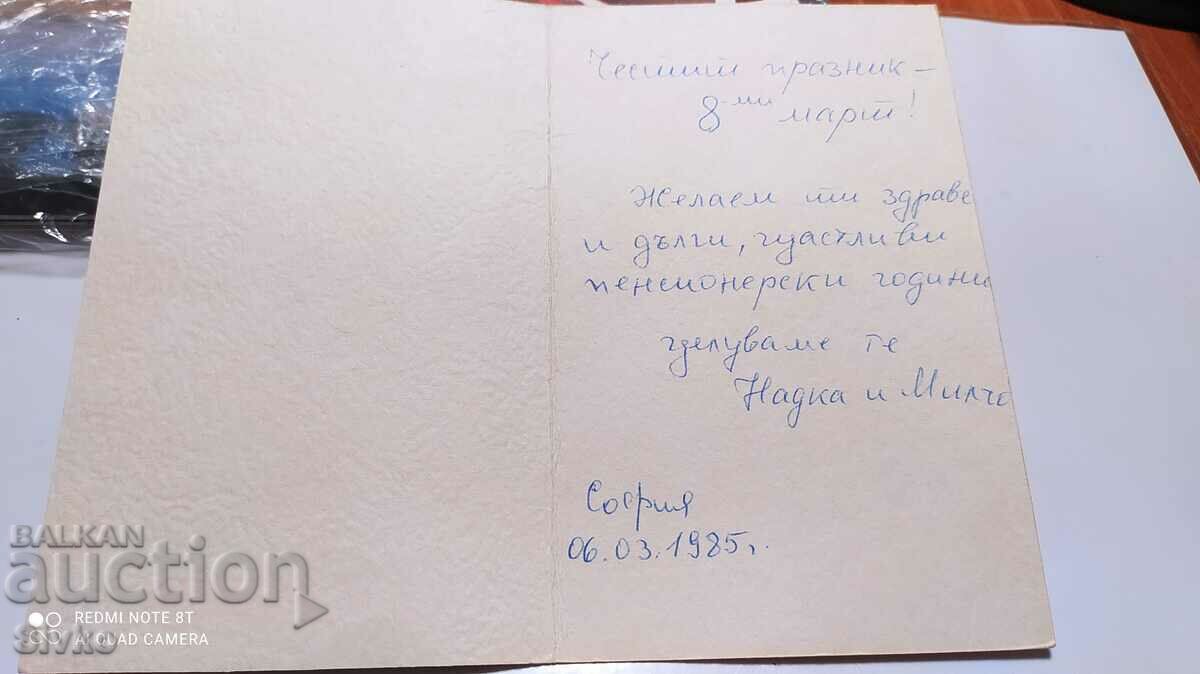 Честит празник –
8-ми март!
Желаем ти здраве
и дълги, щастливи
пенсионерски години
целуваме те
Надка и Милчо
София
06.03.1985г.
BALKAN
auction
REDMI NOTE 8T
AI QUAD CAMERA
Sivko